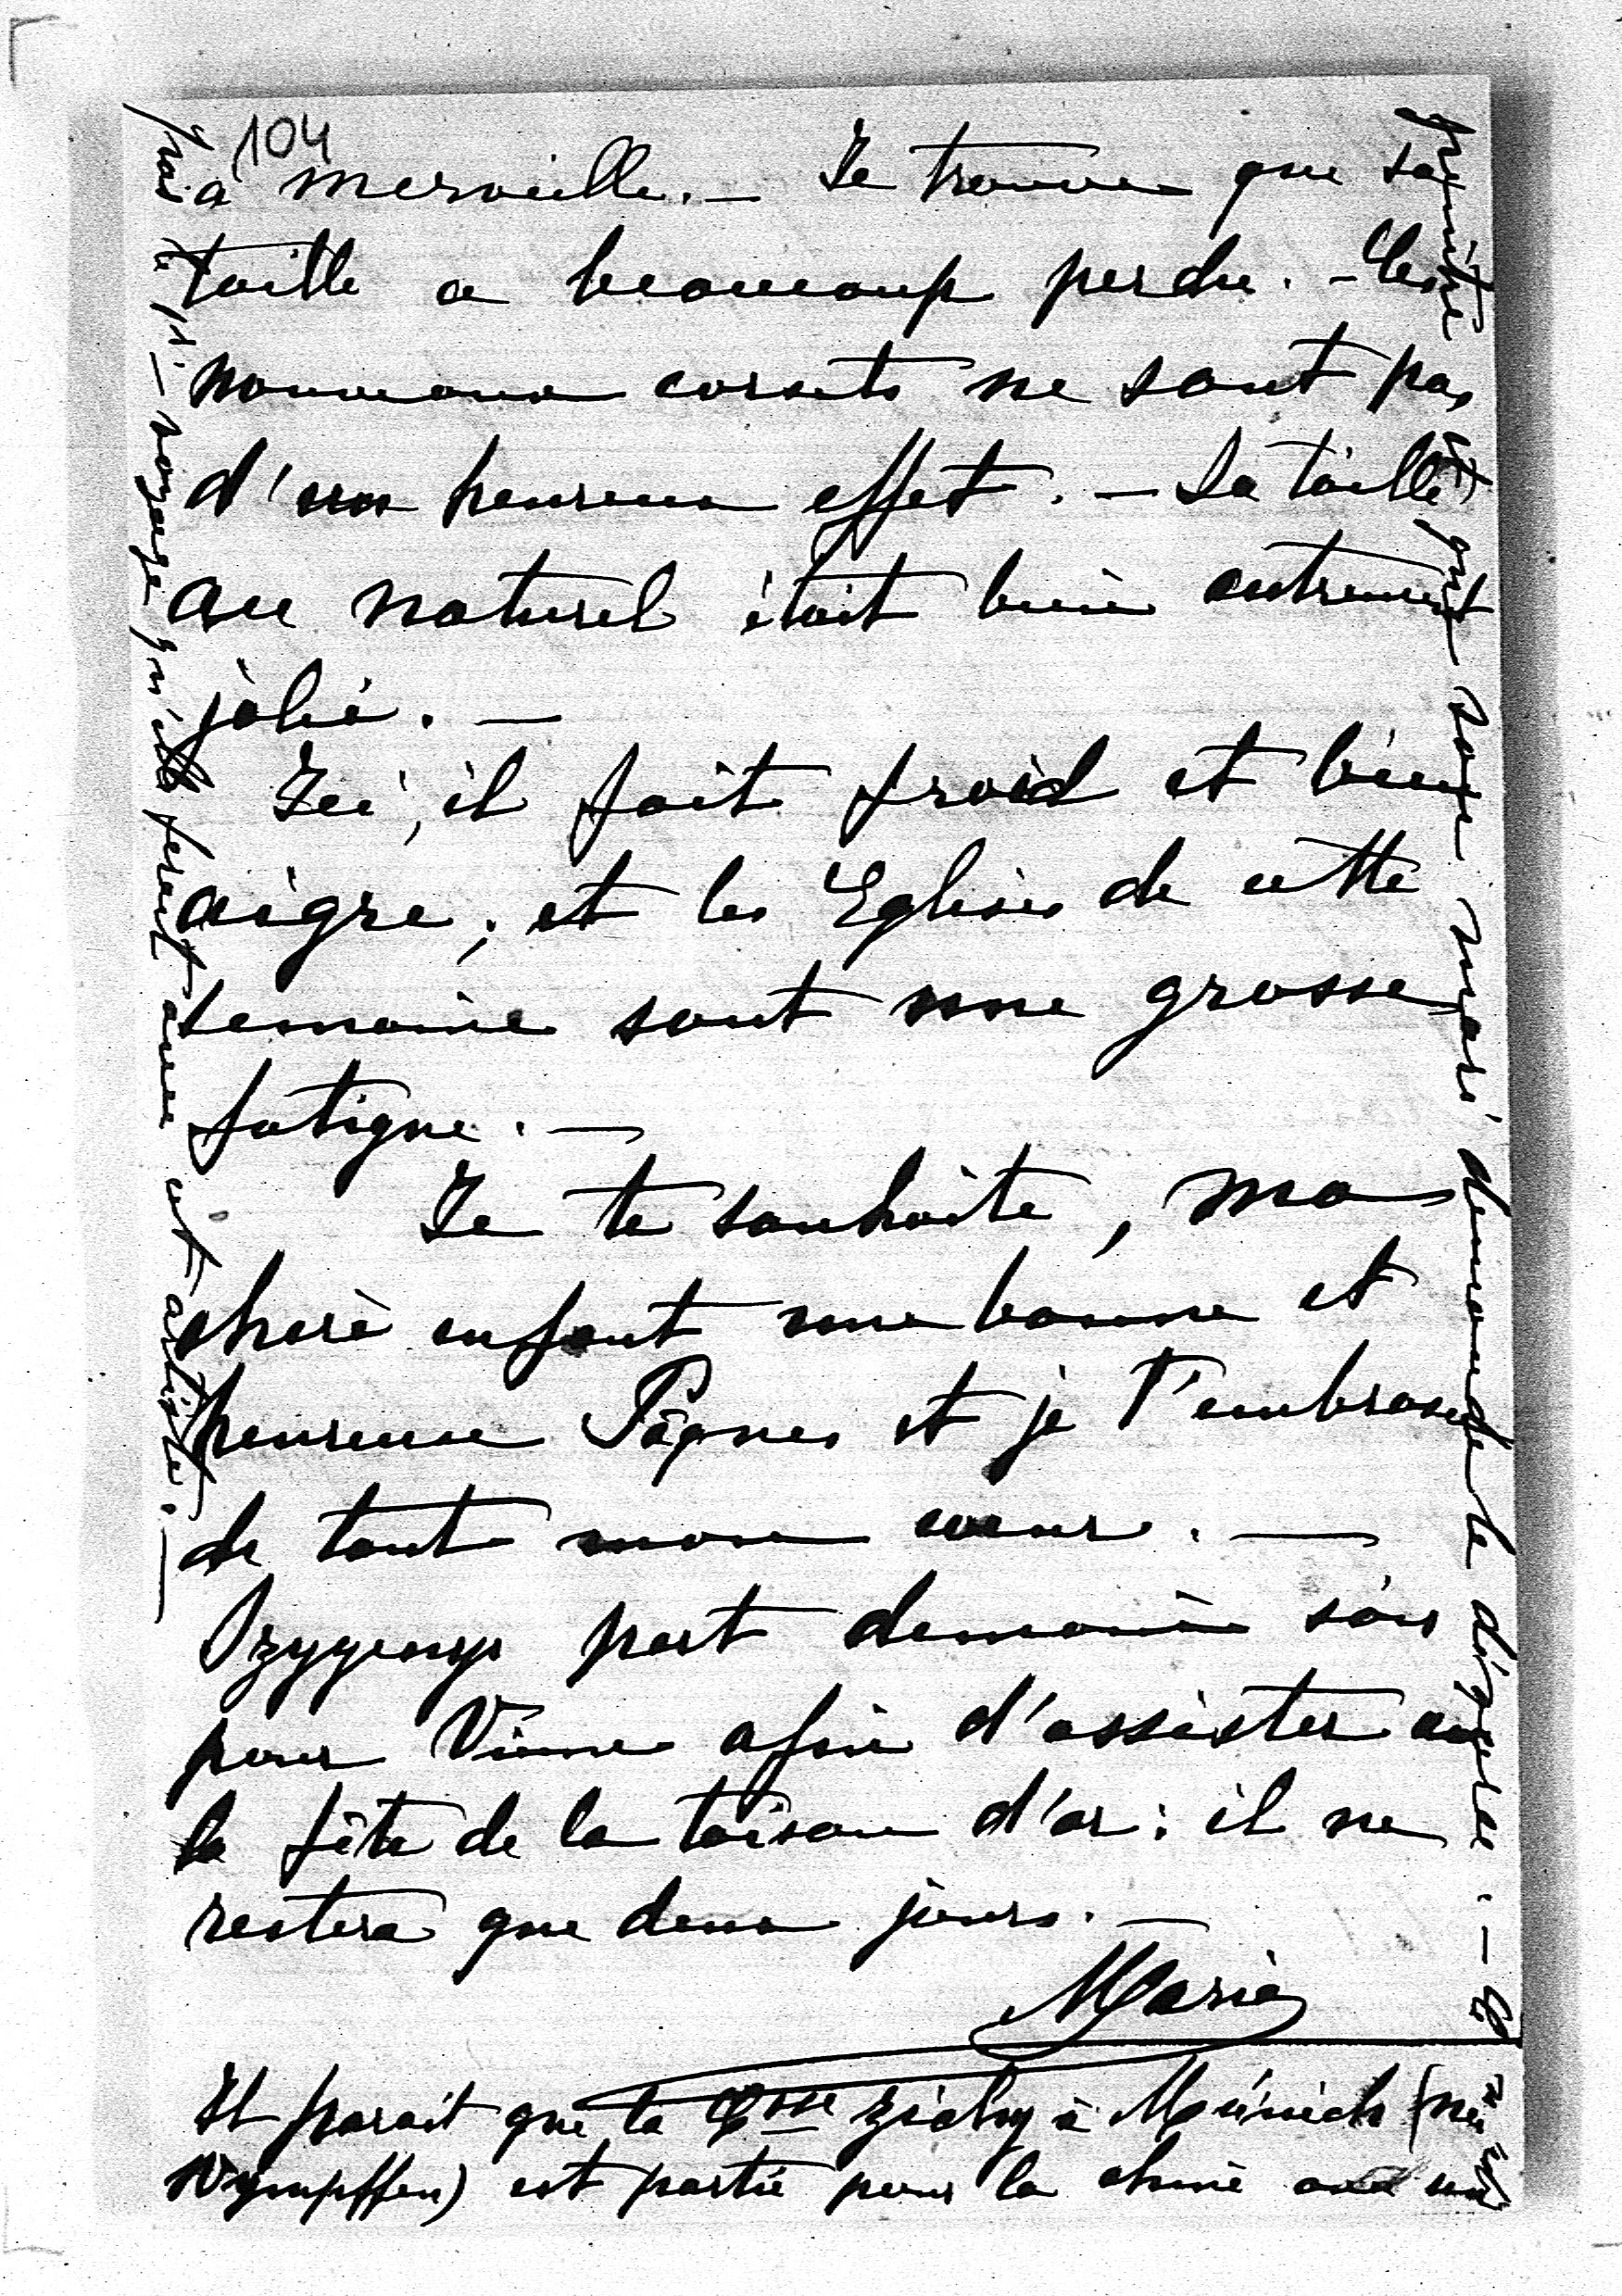 104
à merveille. — Je trouve que sa
taille a beaucoup perdu. — Les
nouveaux corsets ne sont pas
d'un heureux effet. — La taille
au naturel était bien autrement
jolie. —
Ici, il fait froid et bien
aigre; et les Eglises de cette
semaine sont une grosse
fatigue. —
Je te souhaite, ma
chère enfant une bonne et
heureuse Pâques et je t'embrasse
de tout mon coeur. —
part demain soir
pour Vienne afin d'assister a
la fête de la toison d'or: il ne
restera que deux jours. —
Marie
Il parait que la Csse Zichy à Münich (née
Wympffen) est partie pour la chine avec un
peintre et que son mari demande le divorce. —
vrai — voyage qu'ils feront avec cet artiste. —